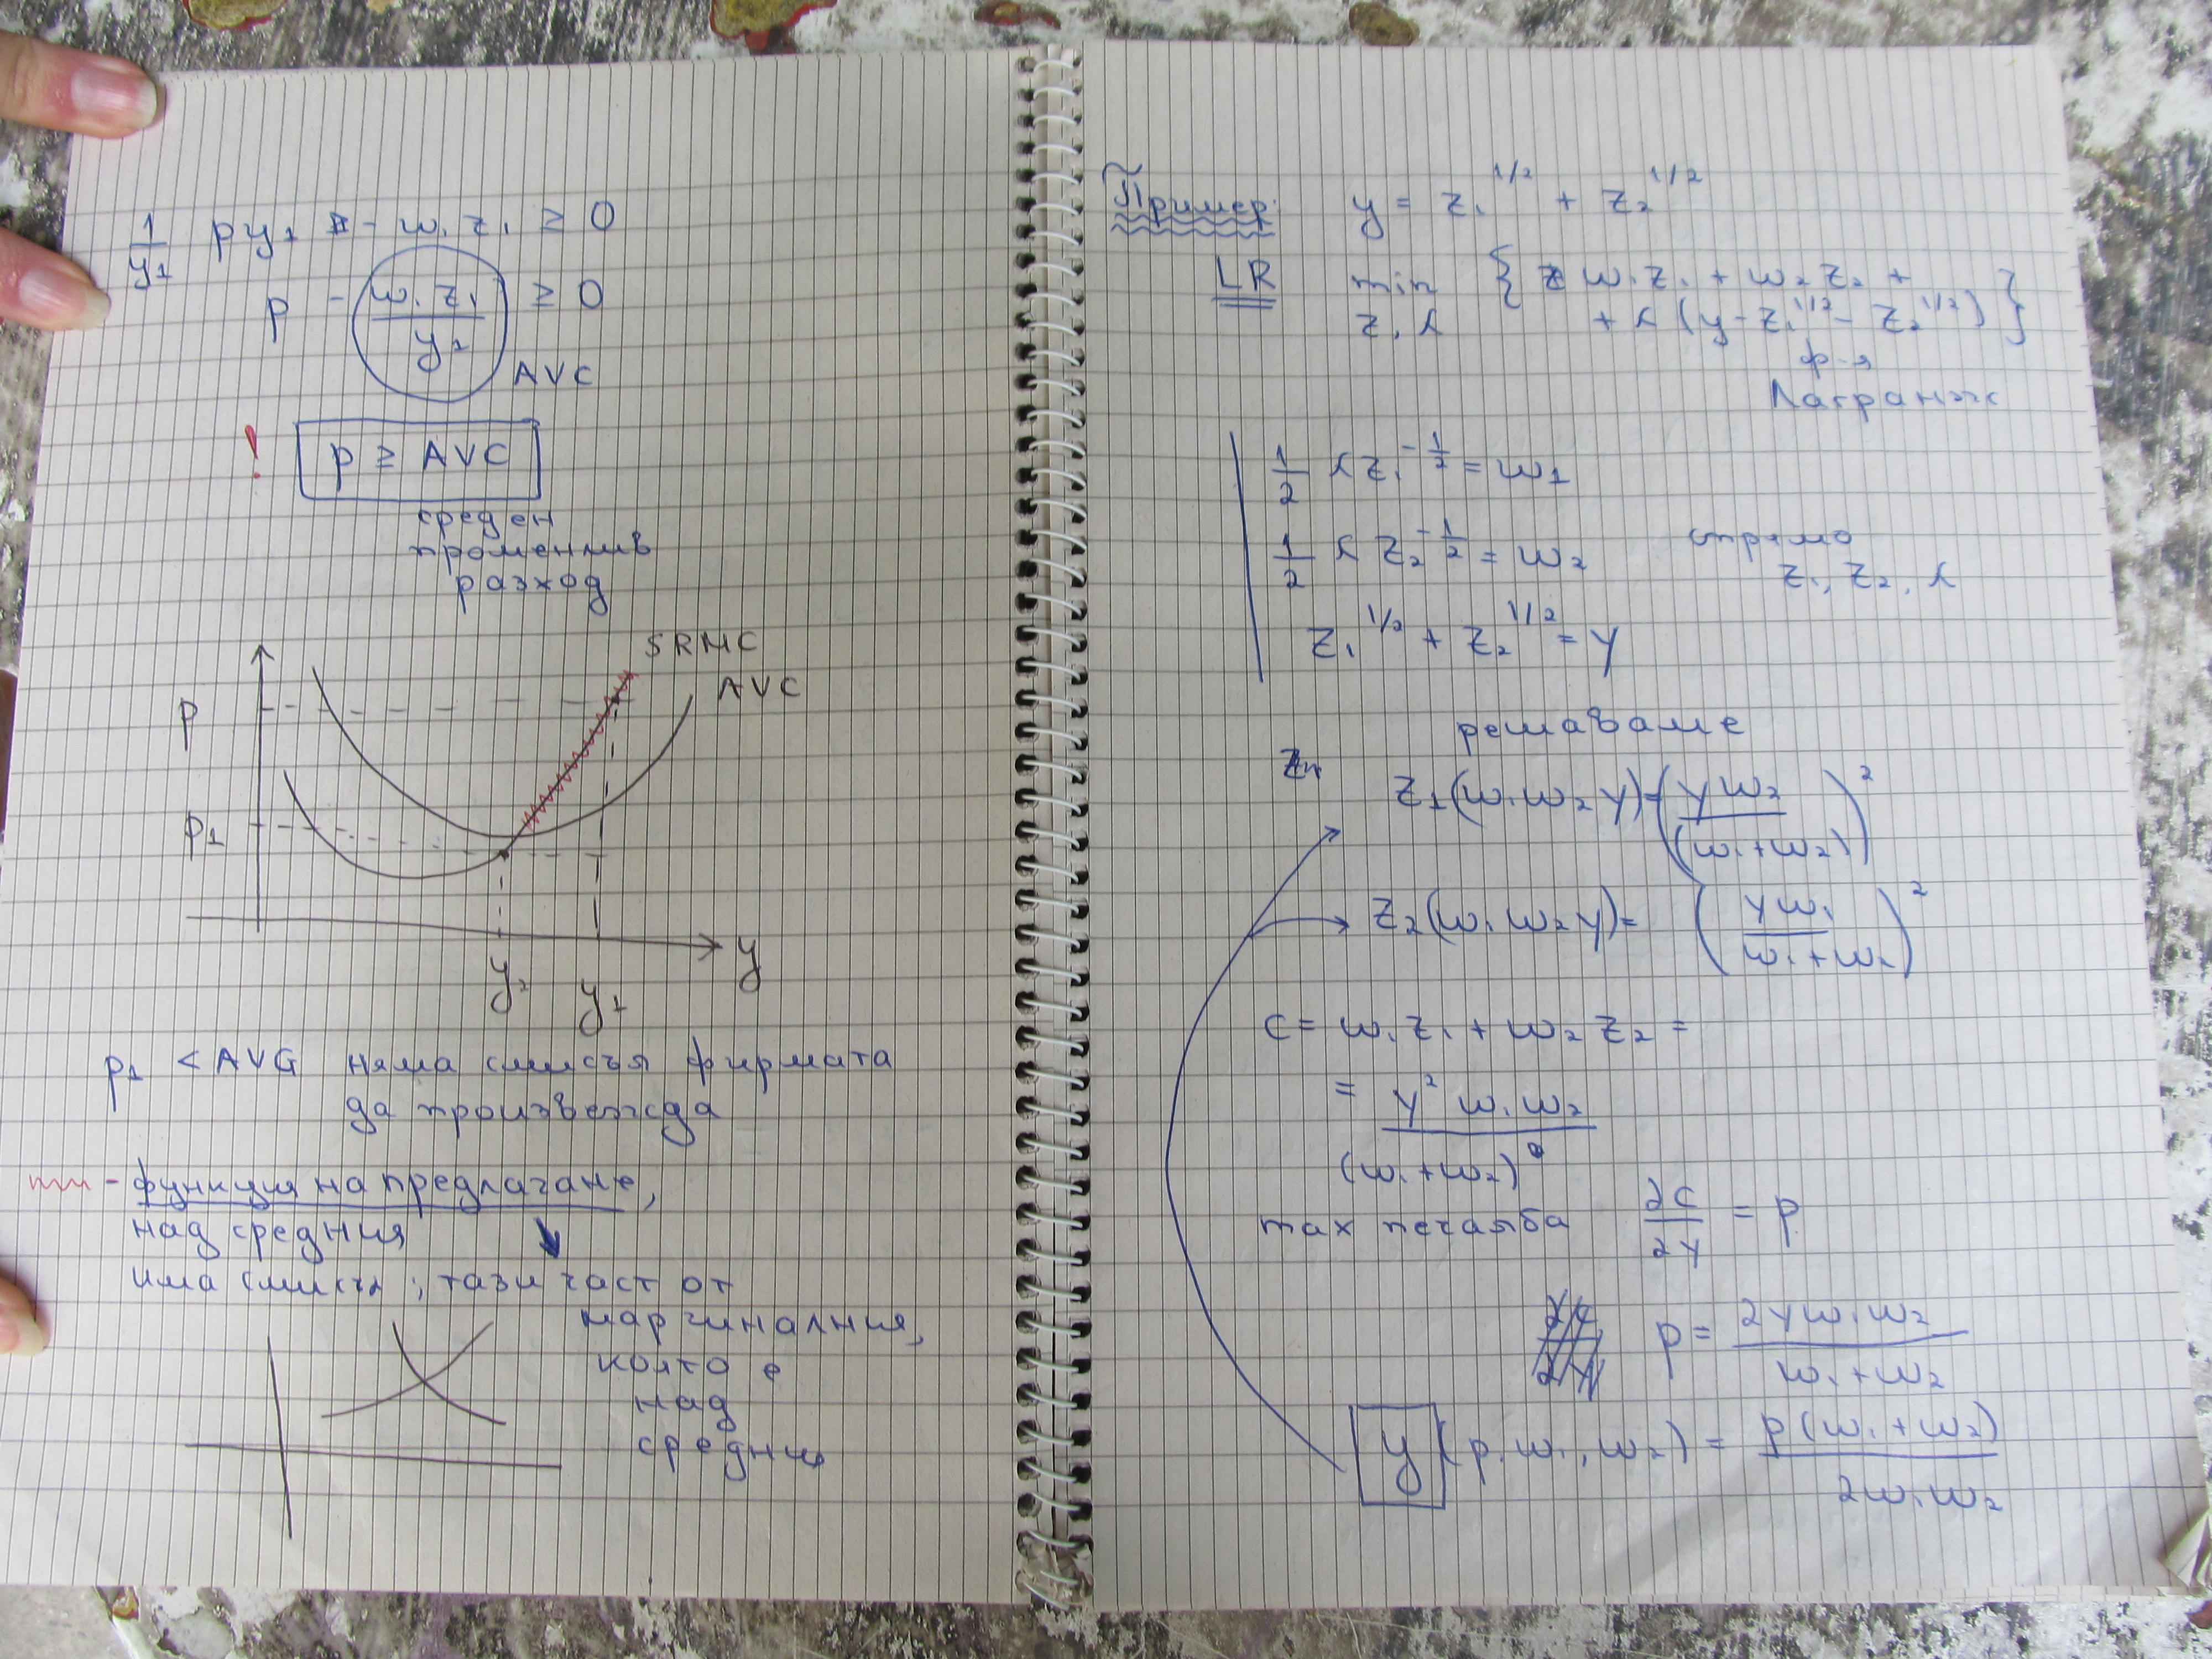 1/y₁ py₁ - w₁z₁ ≥ 0
p - w₁z₁/y₁ ≥ 0
AVC
! p ≥ AVC
среден
променлив
разход
SRMC
AVC
p
p₁
y
y₂ y₁
p₁ < AVG няма смисъл фирмата
да произвежда
- функция на предлагане,
над средния
има смисъл; тази част от
маргиналния,
която е
над
средния
Пример: y = z₁^1/2 + z₂^1/2
LR min { w₁z₁ + w₂z₂ +
z, λ + λ (y - z₁^1/2 - z₂^1/2) }
ф-я
Лагранж
1/2 λ z₁^-1/2 = w₁
1/2 λ z₂^-1/2 = w₂ спрямо
z₁, z₂, λ
z₁^1/2 + z₂^1/2 = y
решаваме
z₁(w₁ w₂ y) = (y w₂/(w₁+w₂))²
z₂(w₁ w₂ y) = (y w₁/w₁+w₂)²
c = w₁z₁ + w₂z₂ =
= y² w₁ w₂/(w₁+w₂)
max печалба ∂c/∂y = p
p = 2y w₁ w₂/w₁+w₂
y (p, w₁, w₂) = p(w₁+w₂)/2w₁w₂